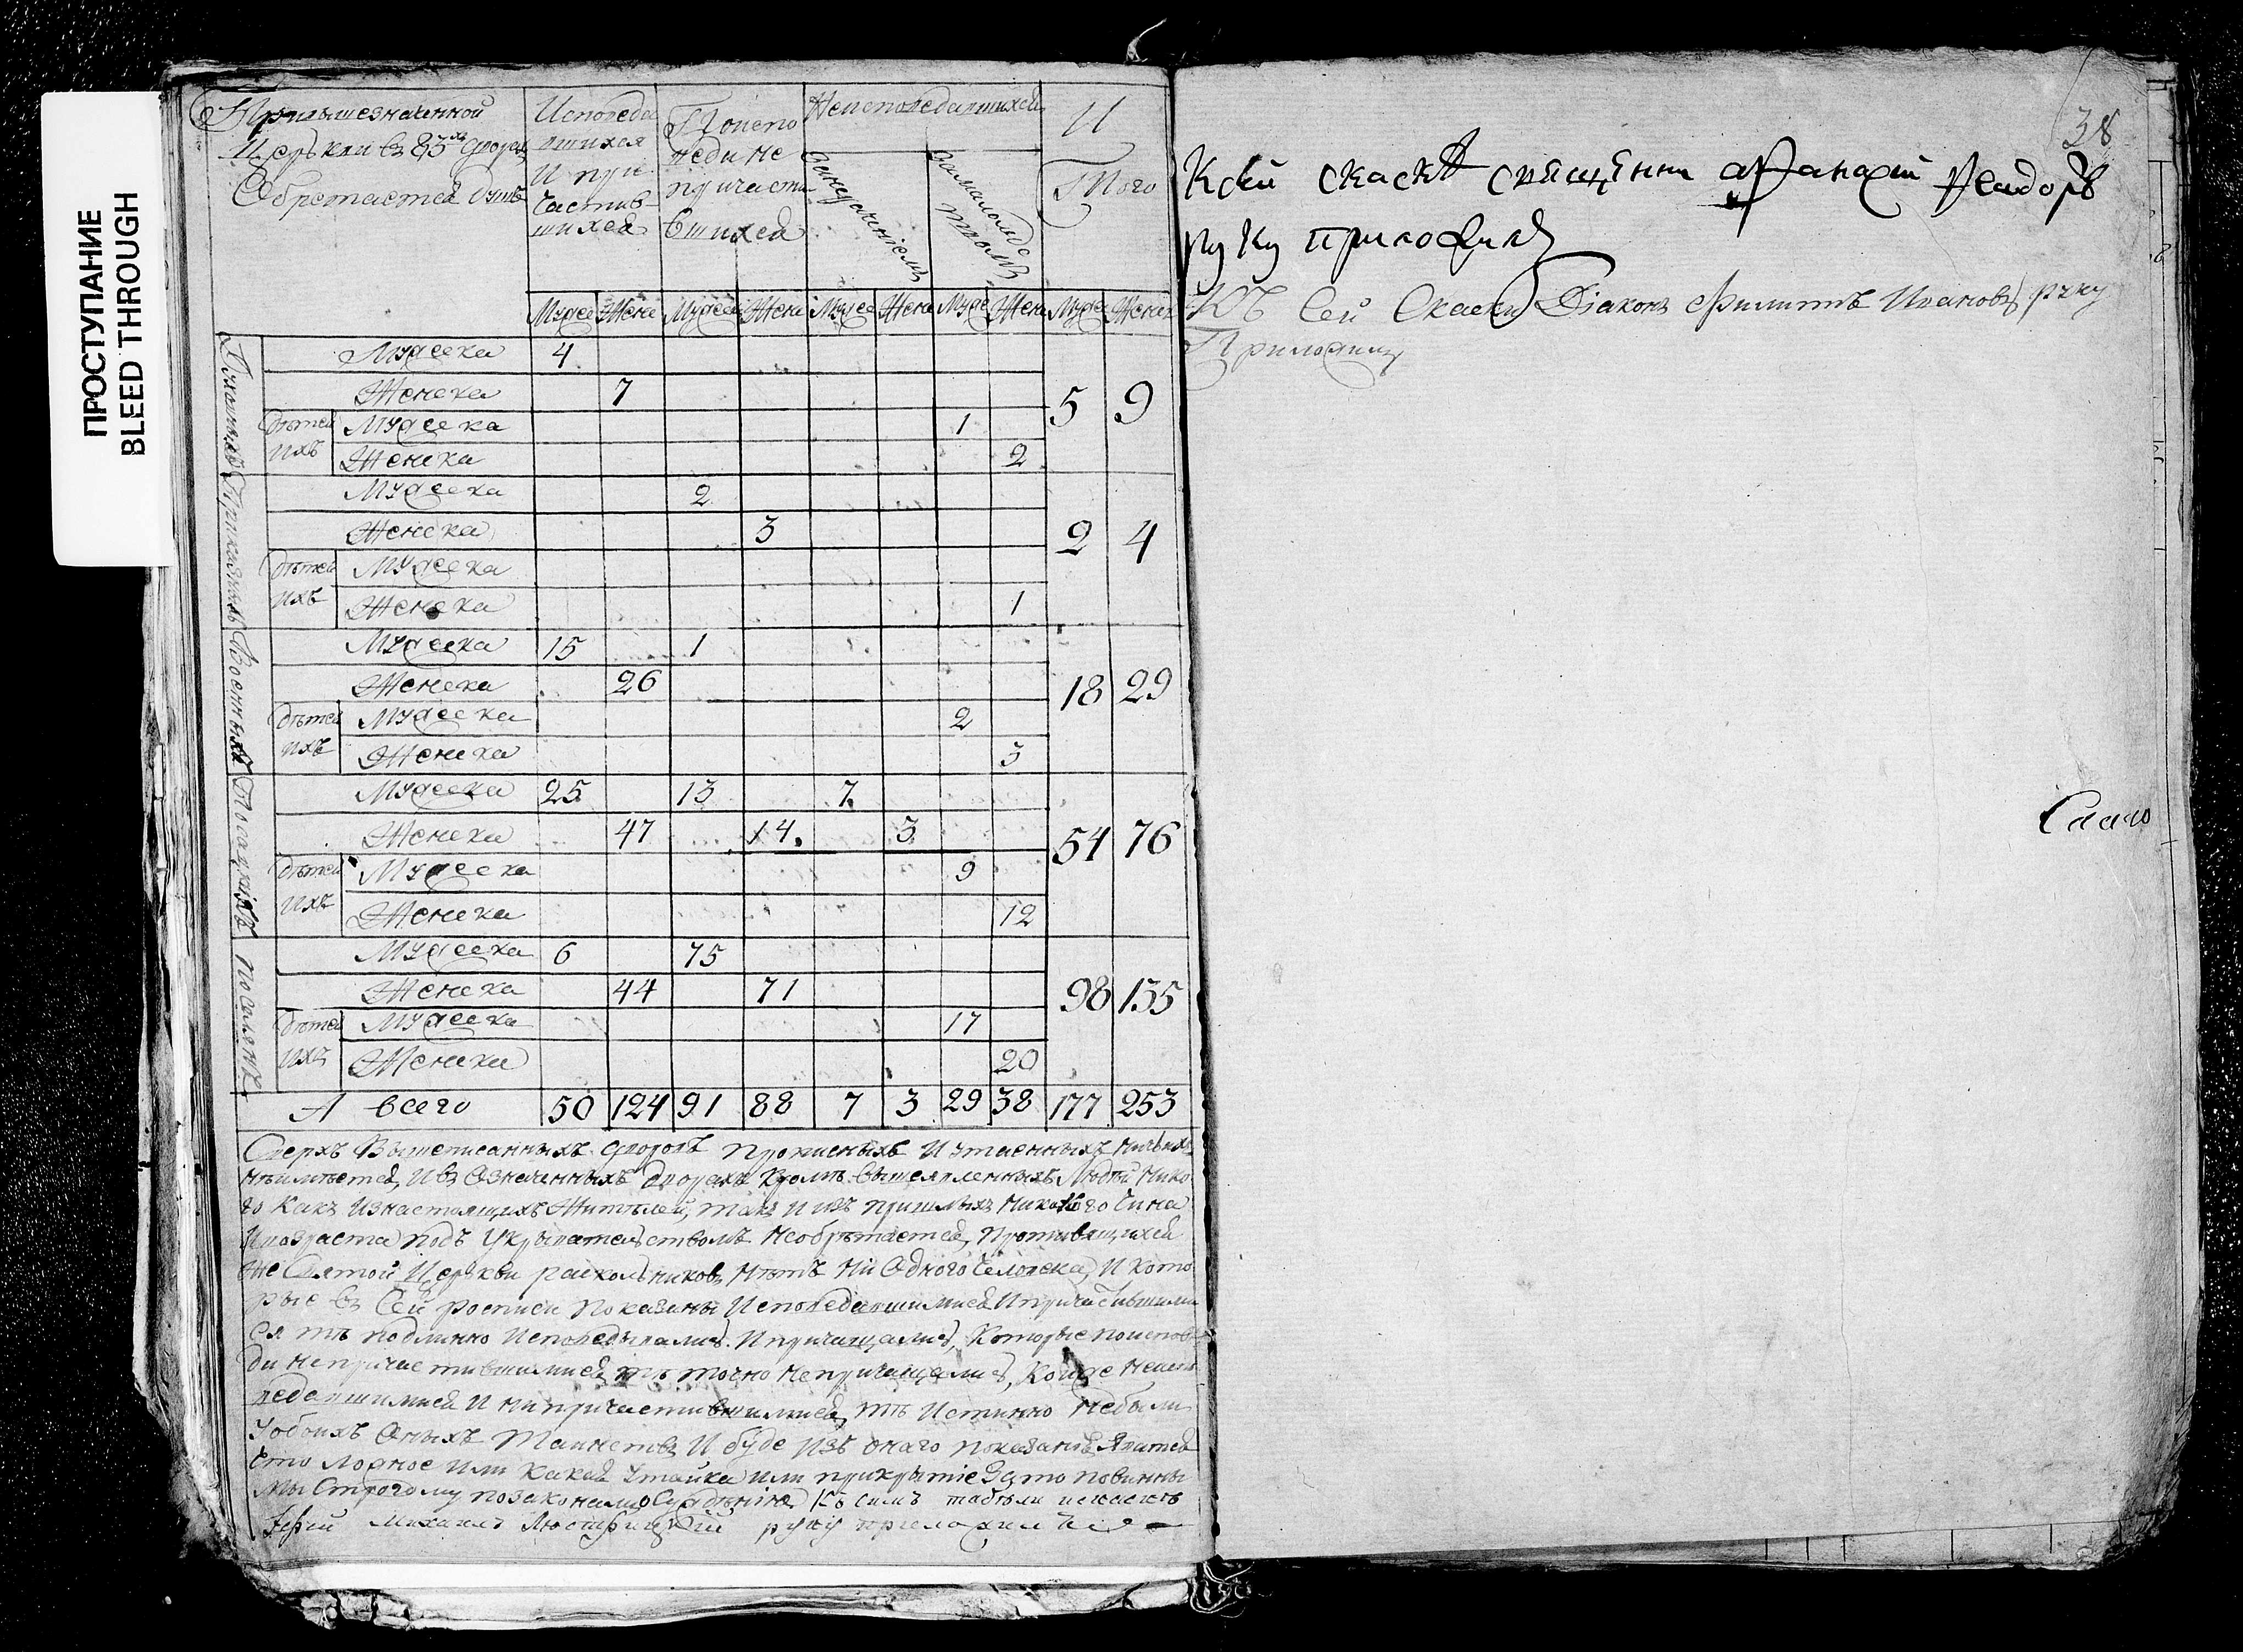 ПРОСТУПАНИЕ
BLEED THROUGH
При вышезначенной
Церькви въ 85хъ дворахъ
Обретается душъ
Исповеда
вшихся
И при
частив
шихся
По испо
веди не
причасти
вшихся
Неисповедавшихся
За нерачениемъ
За малолетствомъ
И
Того
Мужес Женс Мужес Женс Мужес Женс Муже Женс Мужес Женс
Духовныхъ
Мужеска 4
Женска 7
5 9
Детей
ихъ
Мужеска 1
Женска 2
Приказныхъ
Мужеска 2
Женска 3
2 4
Детей
ихъ
Мужеска
Женска 1
Военныхъ
Мужеска 15 1
Женска 26
18 29
детей
ихъ
Мужеска 2
Женска 3
Посацкихъ
Мужеска 25 13 7
Женска 47 14 3
54 76
детей
ихъ
Мужеска 9
Женска 12
Поселянъ
Мужеска 6 75
Женска 44 71
98 135
детей
ихъ
Мужеска 17
Женска 20
А всего 50 124 91 88 7 3 29 38 177 253
Сверхъ Вышеписанныхъ дворовъ прописныхъ И утаенныхъ никакихъ
неимѣется, И въ Означенныхъ дворахъ кромѣ вышеявленныхъ Людей Нико
го какъ Изнастоящихъ Жителей, такъ и изъ пришлыхъ никакого чина
И возраста подъ Укрывательствомъ Необрѣтается, Противящихся
же Святой Церькви раскольниковъ нѣтъ ни Одного человека, И кото
рые въ Сей росписи показаны Исповедавшимися И причастившими
ся тѣ подлинно Исповедывались И причищались, Которые по испов
ди непричастившимися тѣ точно непричащались, Коиже неиспо
ведавшимися И непричастившимися, тѣ Истинно Небыли
У обоихъ Оныхъ Таинствъ И буде изъ онаго показания Явится
что ложное или какая Утайка или прикрытие За то повинны
мы Строгому по законамъ осуждению Къ симъ табели и скаскѣ
Иерей Михаилъ руку приложилъ
38
К сей скаскѣ священникъ Афанасий Феадоровъ
руку приложилъ
Къ Сей Скаски Диаконъ Филиппъ Ивановъ руку
Приложилъ